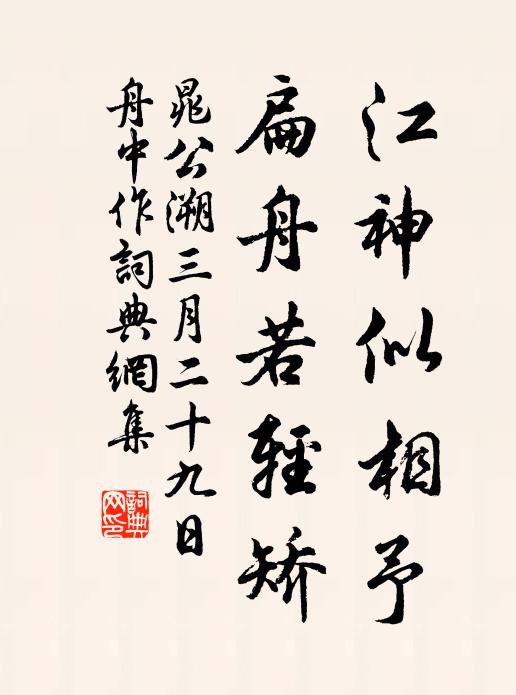 江神似相予
扁舟若輕矯
晁公溯三月二十九日
舟中作詞典網集
詞典网印